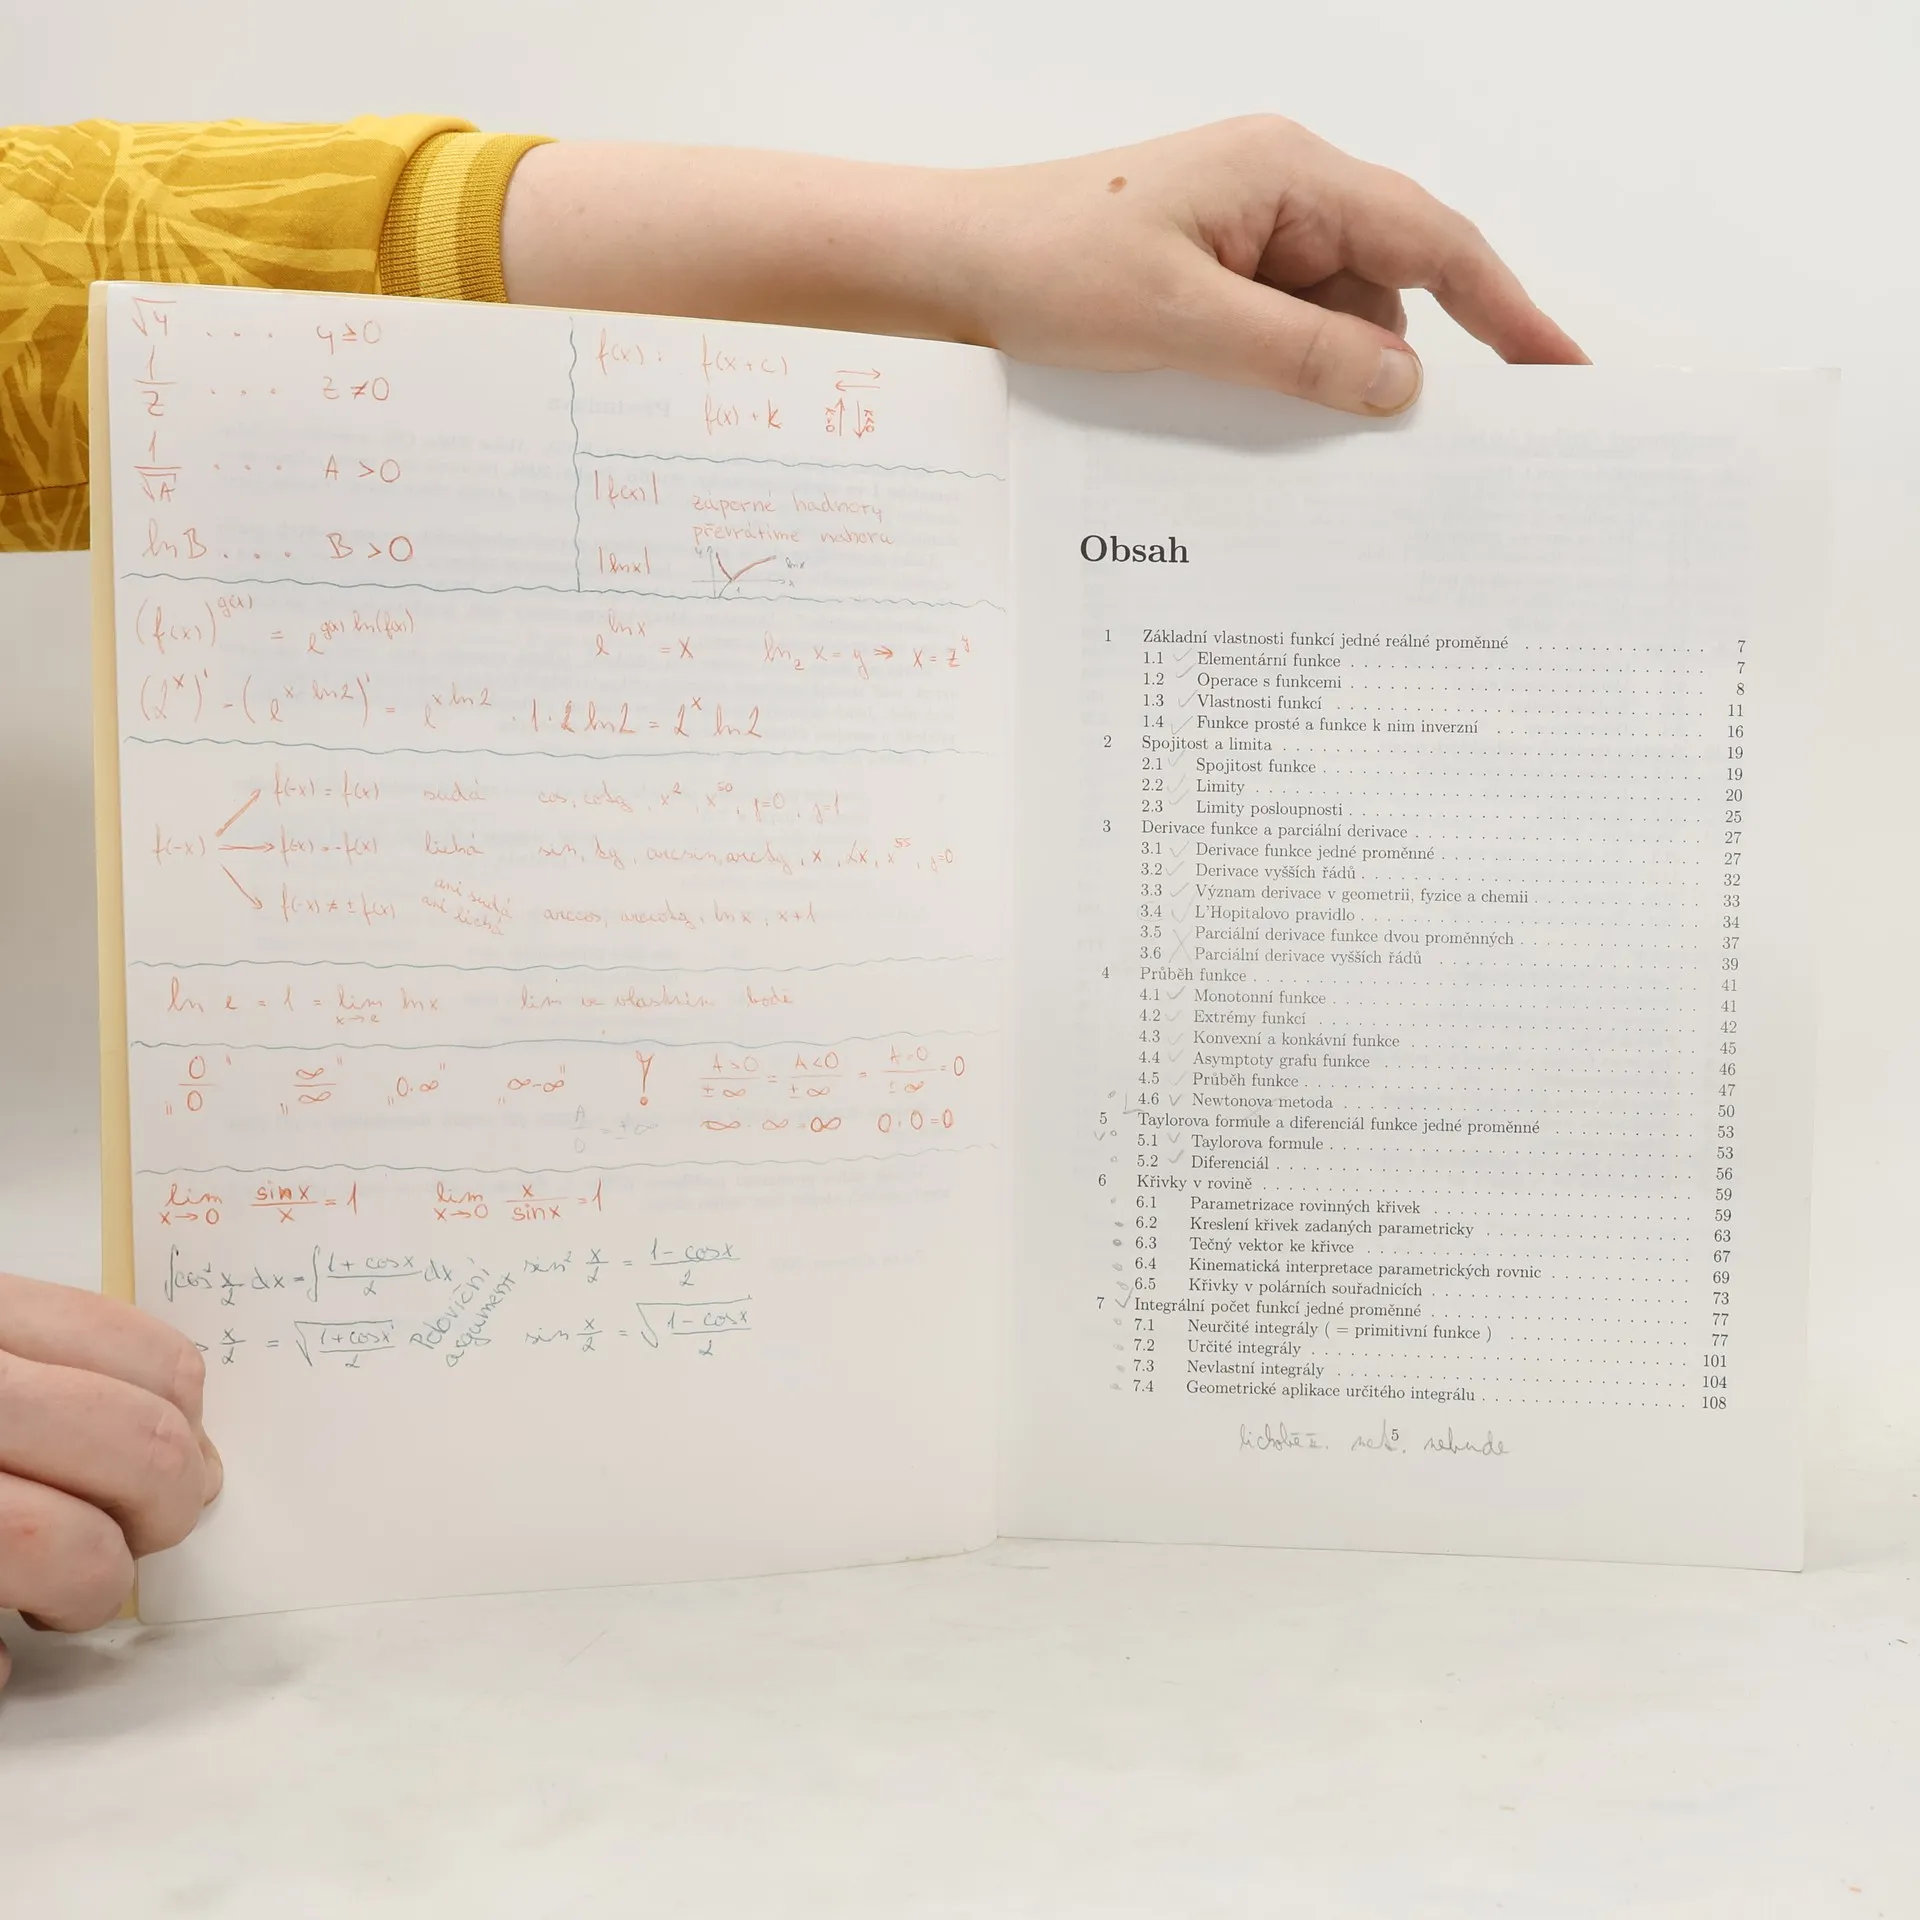 √y . . . y≥0
1/z . . . z≠0
1/√A . . . A>0
ln B . . . B>0
f(x): f(x+c)
f(x)+k
|f(x)| záporné hodnoty
převrátíme nahoru
|ln x|
(f(x))^g(x) = e^(g(x) ln(f(x))) e^(ln x) = x ln_z x = y ⇒ x = z^y
(2^x)' = (e^(x ln 2))' = e^(x ln 2) · 1 · 2 ln 2 = 2^x ln 2
f(-x) = f(x) sudá cos, cotg, x^2, x^50, y=0, y=1
f(-x) f(-x) = -f(x) lichá sin, tg, arcsin, arctg, x, 2x, x^55, y=0
f(-x) ≠ ± f(x) ani sudá ani lichá arccos, arccotg, ln x, x+1
ln e = 1 = lim x→e ln x lim ve vlastním bodě
„0/0" „∞/∞" „0·∞" „∞-∞" ! A>0/±∞ = A<0/±∞ = A=0/±∞ = 0
A/0 = ±∞ ∞·∞=∞ 0·0=0
lim x→0 sin x/x = 1 lim x→0 x/sin x = 1
∫cos² x/2 dx = ∫ (1+cos x)/2 dx sin² x/2 = (1-cos x)/2
x/2 = √((1+cos x)/2) poloviční argument sin x/2 = √((1-cos x)/2)
Obsah
1 Základní vlastnosti funkcí jedné reálné proměnné . . . 7
1.1 Elementární funkce . . . 7
1.2 Operace s funkcemi . . . 8
1.3 Vlastnosti funkcí . . . 11
1.4 Funkce prosté a funkce k nim inverzní . . . 16
2 Spojitost a limita . . . 19
2.1 Spojitost funkce . . . 19
2.2 Limity . . . 20
2.3 Limity posloupnosti . . . 25
3 Derivace funkce a parciální derivace . . . 27
3.1 Derivace funkce jedné proměnné . . . 27
3.2 Derivace vyšších řádů . . . 32
3.3 Význam derivace v geometrii, fyzice a chemii . . . 33
3.4 L'Hopitalovo pravidlo . . . 34
3.5 Parciální derivace funkce dvou proměnných . . . 37
3.6 Parciální derivace vyšších řádů . . . 39
4 Průběh funkce . . . 41
4.1 Monotonní funkce . . . 41
4.2 Extrémy funkcí . . . 42
4.3 Konvexní a konkávní funkce . . . 45
4.4 Asymptoty grafu funkce . . . 46
4.5 Průběh funkce . . . 47
4.6 Newtonova metoda . . . 50
5 Taylorova formule a diferenciál funkce jedné proměnné . . . 53
5.1 Taylorova formule . . . 53
5.2 Diferenciál . . . 56
6 Křivky v rovině . . . 59
6.1 Parametrizace rovinných křivek . . . 59
6.2 Kreslení křivek zadaných parametricky . . . 63
6.3 Tečný vektor ke křivce . . . 67
6.4 Kinematická interpretace parametrických rovnic . . . 69
6.5 Křivky v polárních souřadnicích . . . 73
7 Integrální počet funkcí jedné proměnné . . . 77
7.1 Neurčité integrály ( = primitivní funkce ) . . . 77
7.2 Určité integrály . . . 101
7.3 Nevlastní integrály . . . 104
7.4 Geometrické aplikace určitého integrálu . . . 108
5
lichoběž. met. nebude